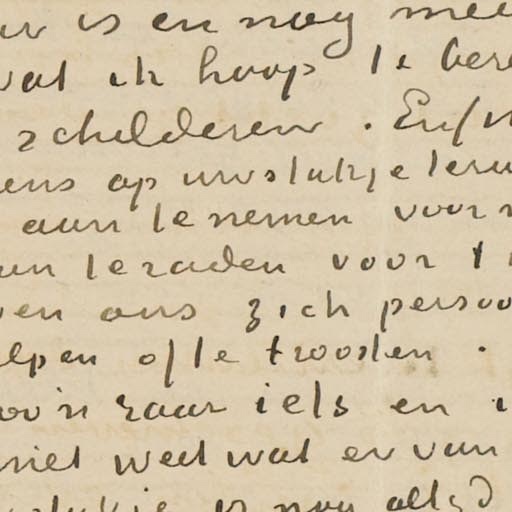 is en nog mee
wat ik hoop te bere
schilderen. Enfin
ens op uw stukje teru
aan te nemen voor
aan te raden voor
ven ons zich perso
elpen of te troosten.
oo'n raar iets en
niet weet wat er van
stukje is nog altyd